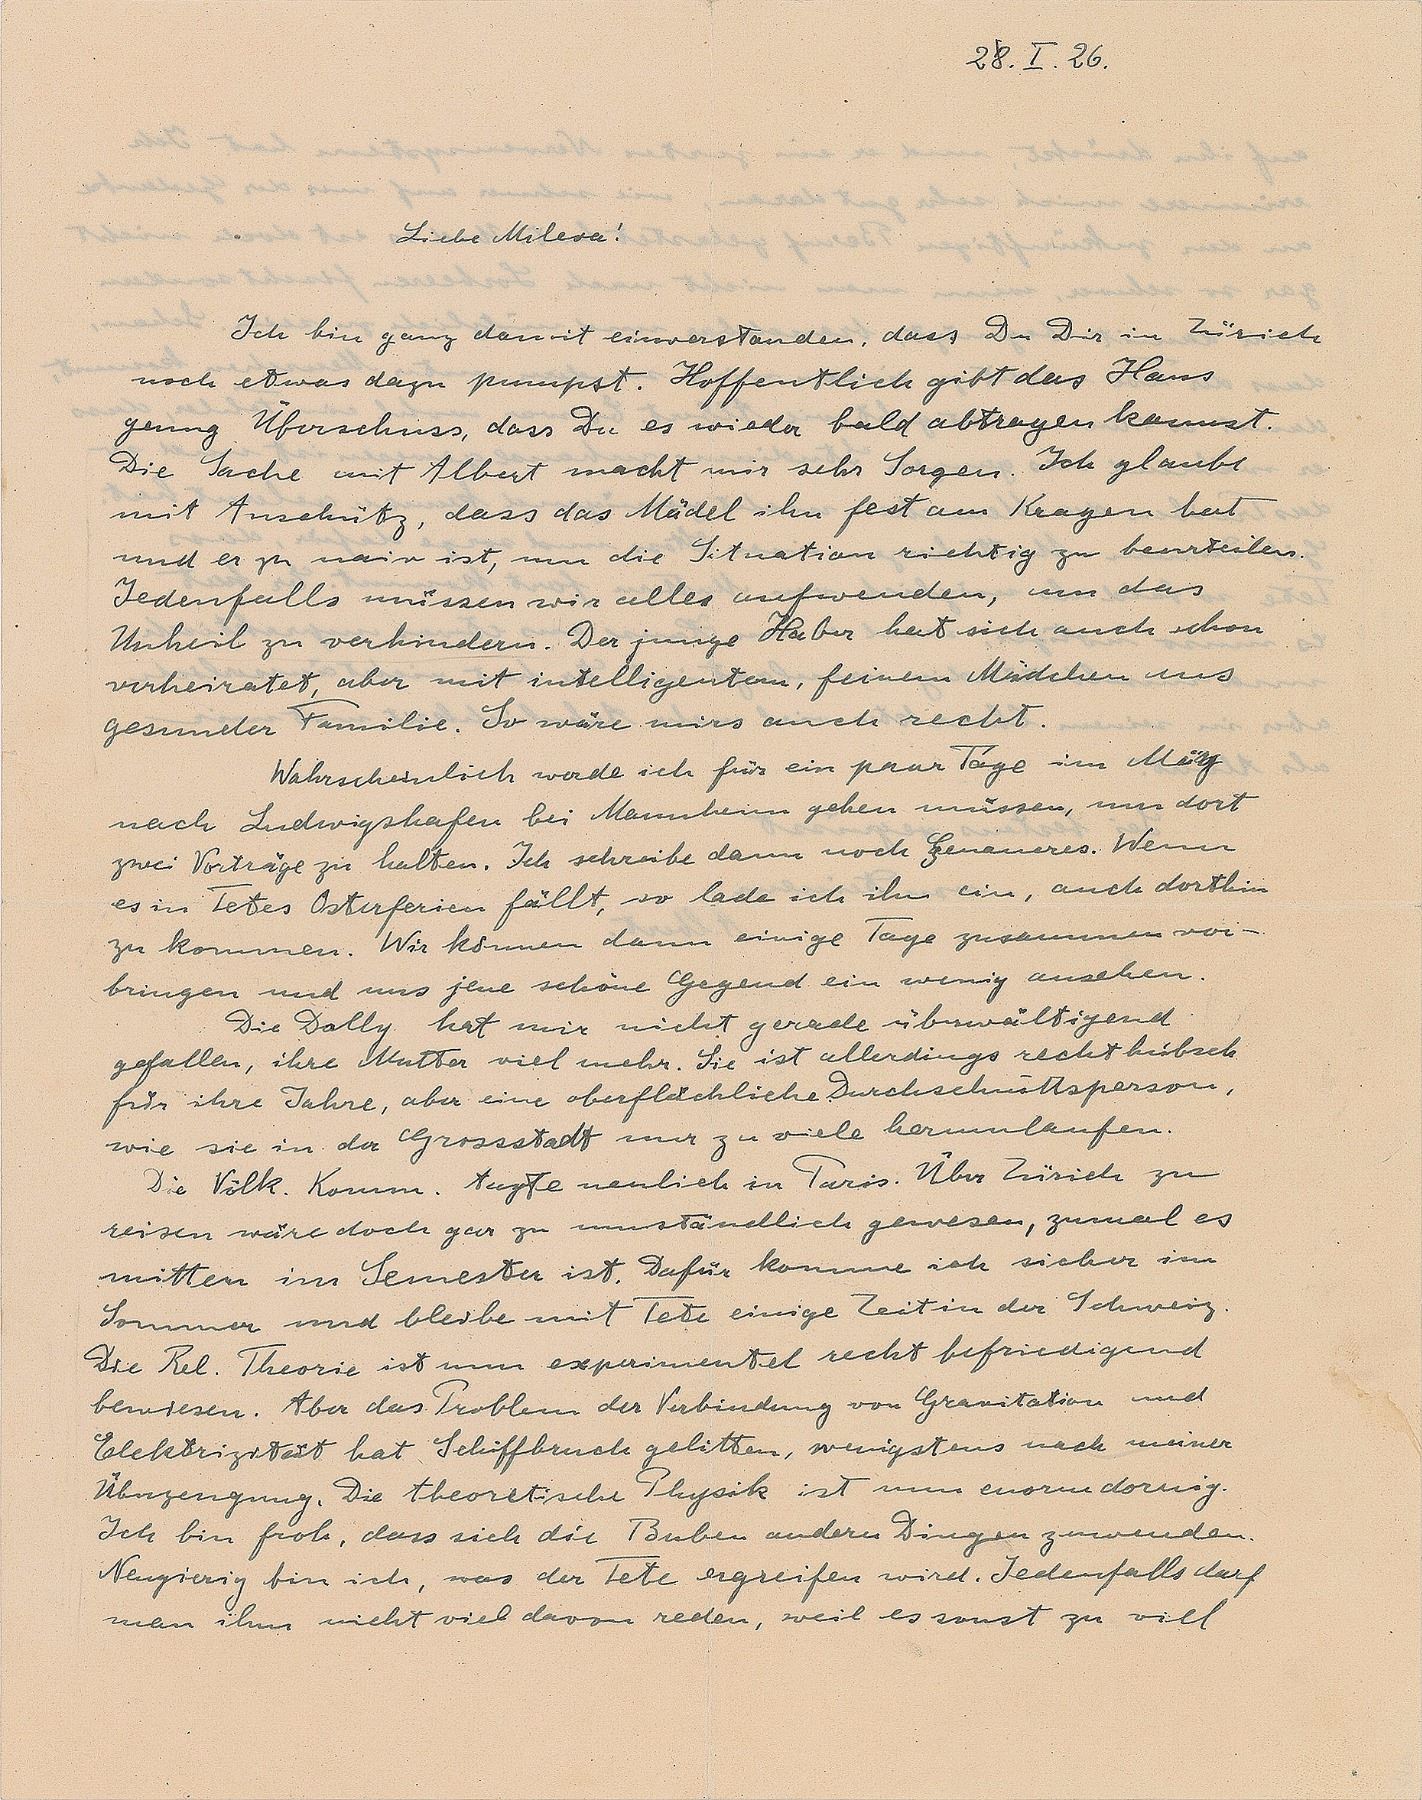 28. I. 26.
Liebe Mileva!
Ich bin ganz damit einverstanden, dass Du Dir in Zürich
noch etwas dazu pumpst. Hoffentlich gibt das Haus
genug Überschuss, dass Du es wieder bald abtragen kannst.
Die Sache mit Albert macht mir sehr Sorgen. Ich glaube
mit Anschütz, dass das Mädel ihn fest am Kragen hat
und er zu naiv ist, um die Situation richtig zu beurteilen.
Jedenfalls müssen wir alles aufwenden, um das
Unheil zu verhindern. Der junge Haber hat sich auch schon
verheiratet, aber mit intelligentem, feinem Mädchen aus
gesunder Familie. So wäre mirs auch recht.
Wahrscheinlich werde ich für ein paar Tage im März
nach Ludwigshafen bei Mannheim gehen müssen, um dort
zwei Vorträge zu halten. Ich schreibe dann noch Genaueres. Wenn
es in Tetes Osterferien fällt, so lade ich ihn ein, auch dorthin
zu kommen. Wir können dann einige Tage zusammen ver-
bringen und uns jene schöne Gegend ein wenig ansehen.
Die Dolly hat mir nicht gerade überwältigend
gefallen, ihre Mutter viel mehr. Sie ist allerdings recht hübsch
für ihre Jahre, aber eine oberflächliche Durchschnittsperson,
wie sie in der Grossstadt nur zu viele herumlaufen.
Die Völk. Komm. tagte neulich in Paris. Über Zürich zu
reisen wäre doch gar zu umständlich gewesen, zumal es
mitten im Semester ist. Dafür komme ich sicher im
Sommer und bleibe mit Tete einige Zeit in der Schweiz.
Die Rel. Theorie ist nun experimentel recht befriedigend
bewiesen. Aber das Problem der Verbindung von Gravitation und
Elektrizität hat Schiffbruch gelitten, wenigstens nach meiner
Überzeugung. Die theoretische Physik ist nun enorm dornig.
Ich bin froh, dass sich die Buben andern Dingen zuwenden.
Neugierig bin ich, was der Tete ergreifen wird. Jedenfalls darf
man ihm nicht viel davon reden, weil es sonst zu viel